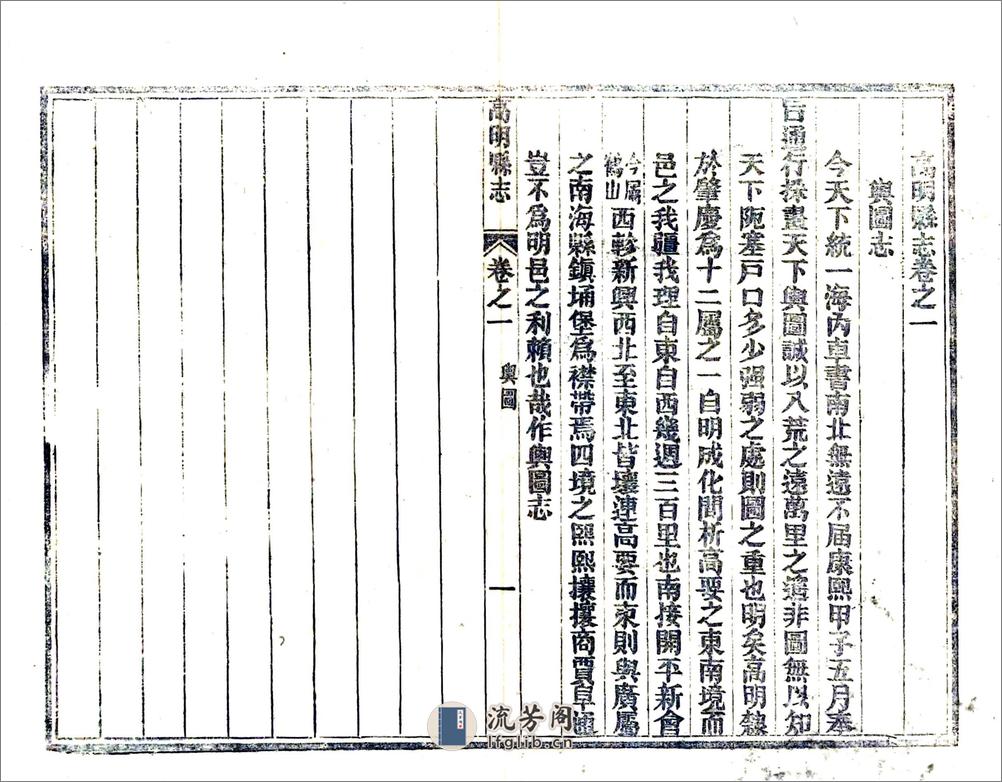 高明縣志卷之一
輿圖志
今天下統一海內車書南北無遠不屆康熙甲子五月奉
旨通行採畫天下輿圖誠以八荒之遠萬里之遙非圖無以知
天下阨塞戶口多少强弱之處則圖之重也明矣高明隸
於肇慶爲十二屬之一自明成化間析高要之東南境而
邑之我疆我理自東自西幾週三百里也南接開平新會
今屬鶴山西軫新興西北至東北皆壤連高要而東則與廣屬
之南海縣鎮埇堡爲襟帶焉四境之熙熙攘攘商賈阜通
豈不爲明邑之利賴也哉作輿圖志
高明縣志
卷之一
輿圖
一
流芳阁
lfglib.cn